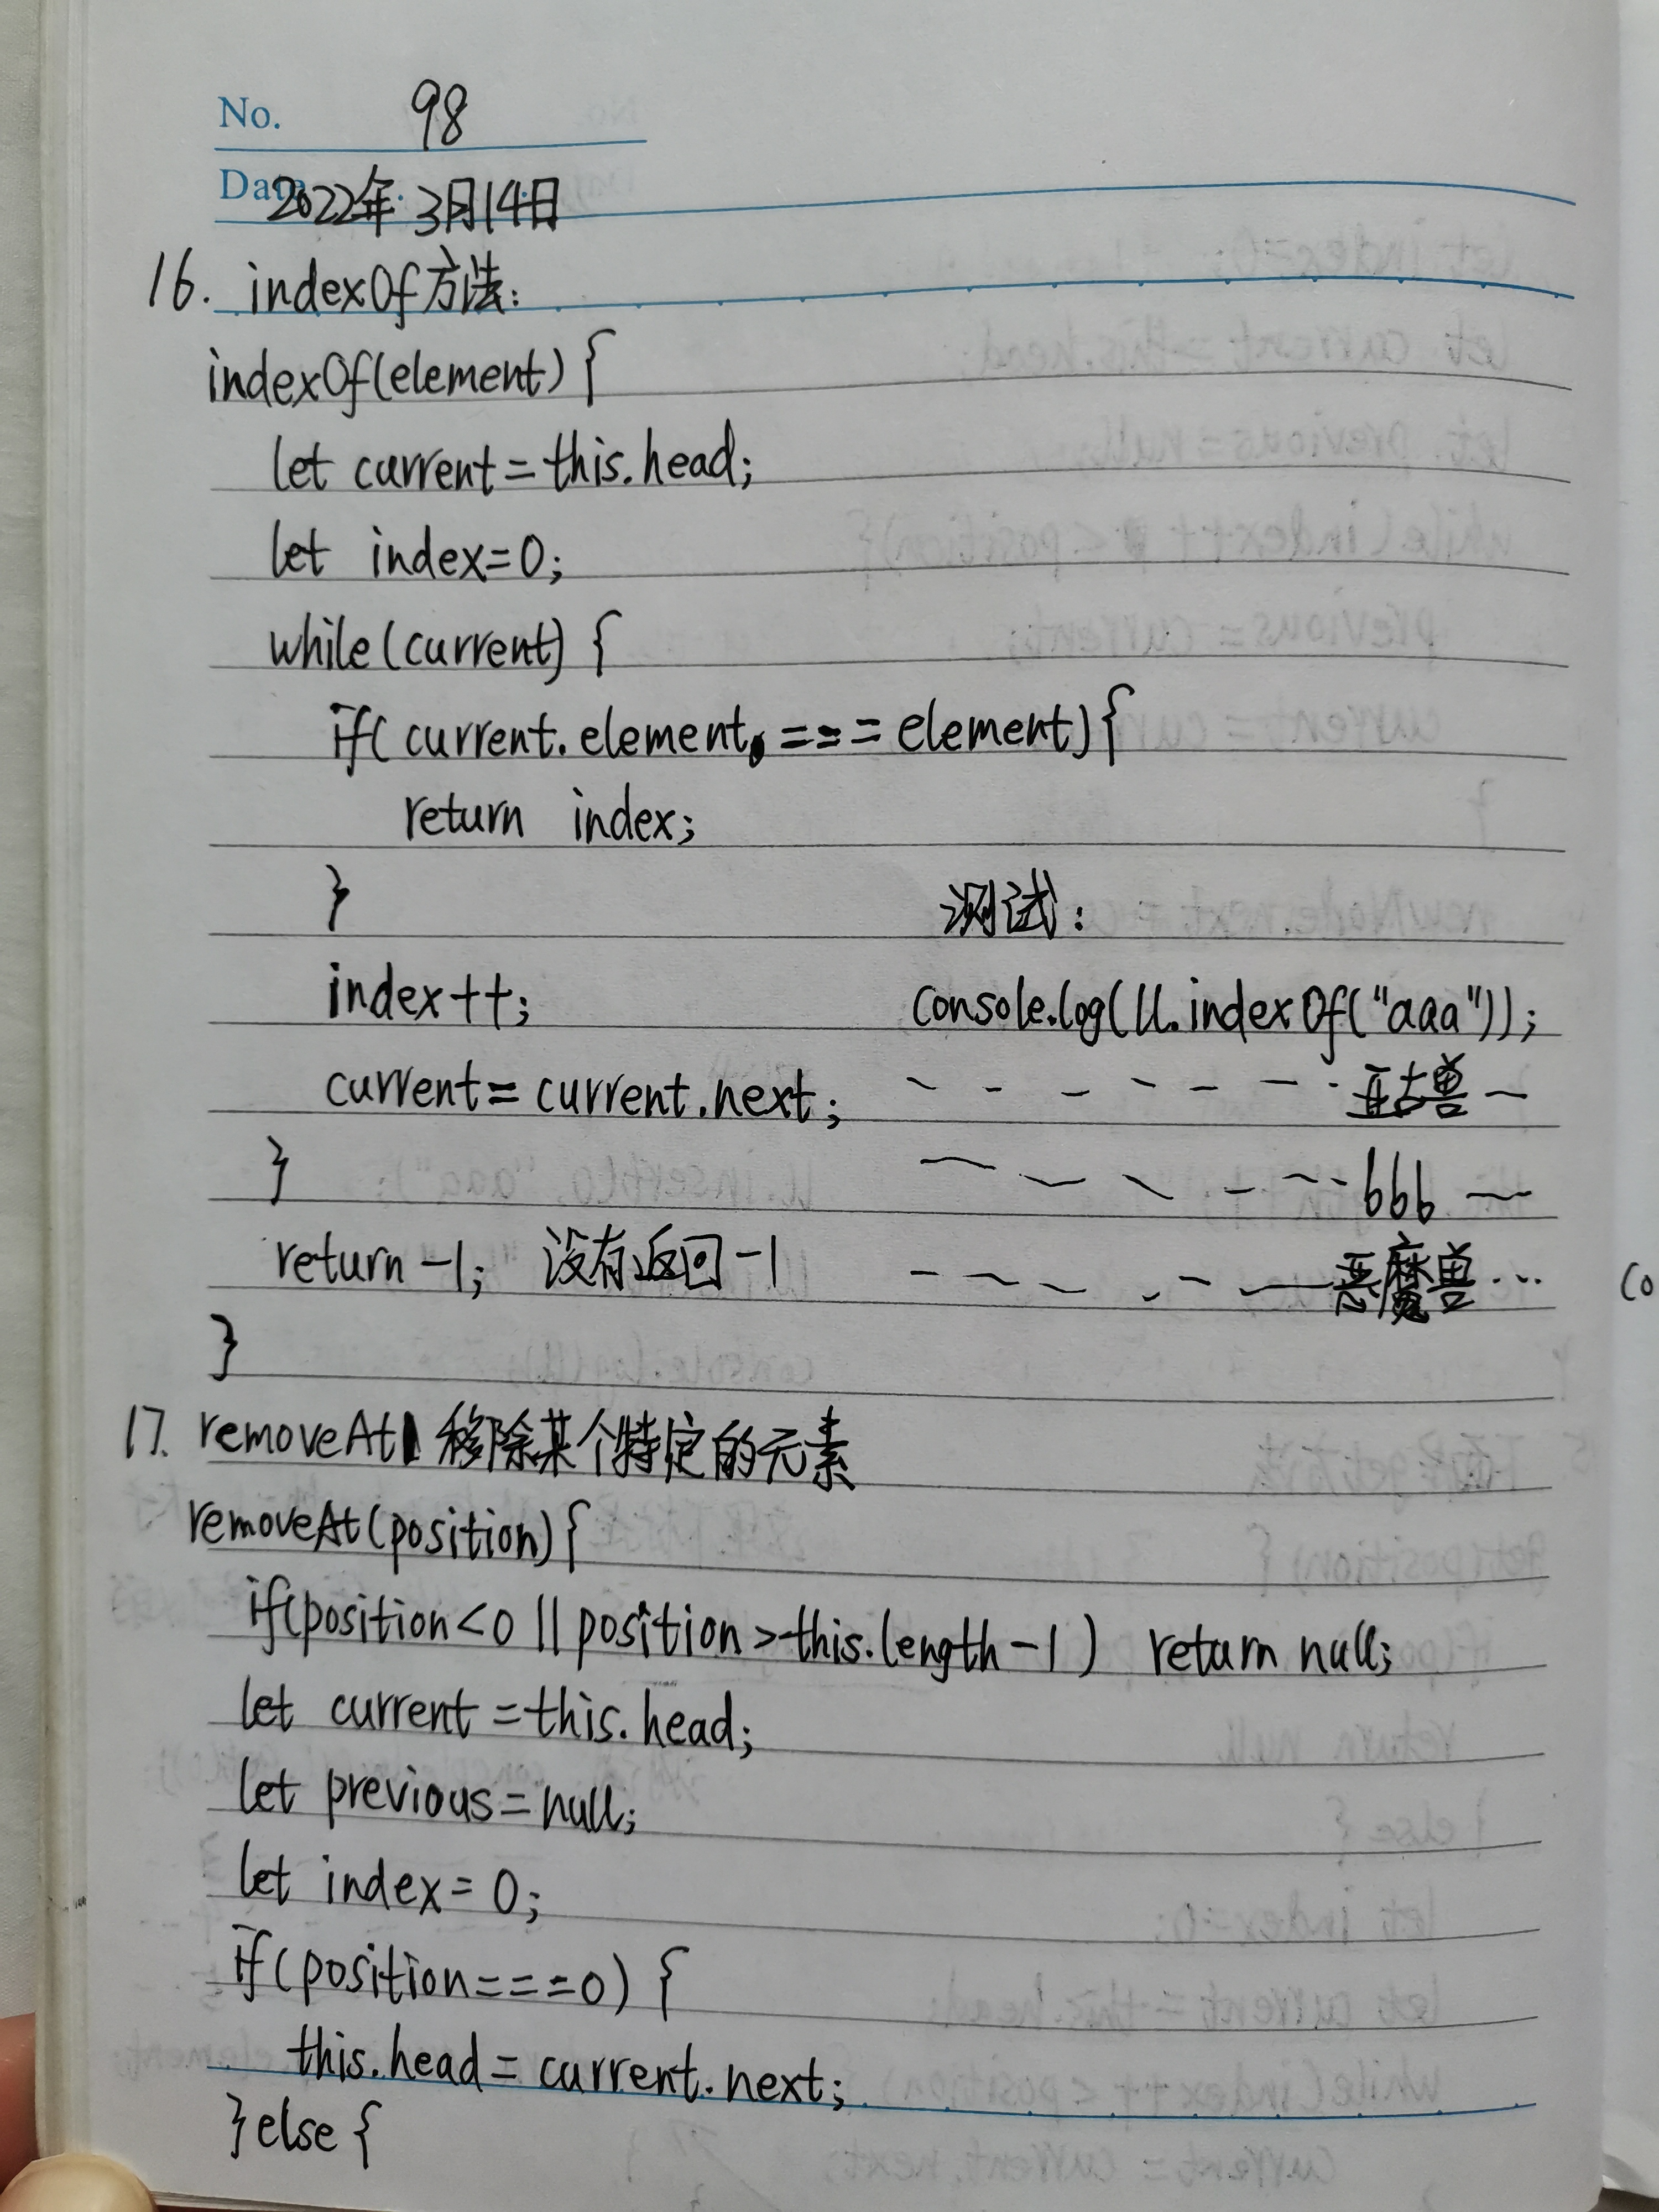 No. 98
Date 2022年3月14日
16. indexOf方法:
indexOf(element) {
let current = this.head;
let index=0;
while(current) {
if( current.element === element){
return index;
}
测试:
index++;
console.log(ll.indexOf("aaa"));
current = current.next;
亚古兽
}
bbb
return -1; 没有返回-1
恶魔兽...
co
}
17. removeAt 移除某个特定的元素
removeAt(position) {
if(position<0 || position >this.length-1) return null;
let current = this.head;
let previous = null;
let index = 0;
if(position===0) {
this.head = current.next;
}else {